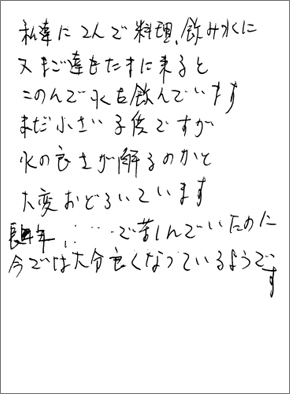 私達に2人で料理、飲み水に
又まご達もたまに来ると
このんで水を飲んでいます
まだ小さい子供ですが
水の良さが解るのかと
大変おどろいています
長年……で苦しんでいたのに
今では大分良くなっているようで
す